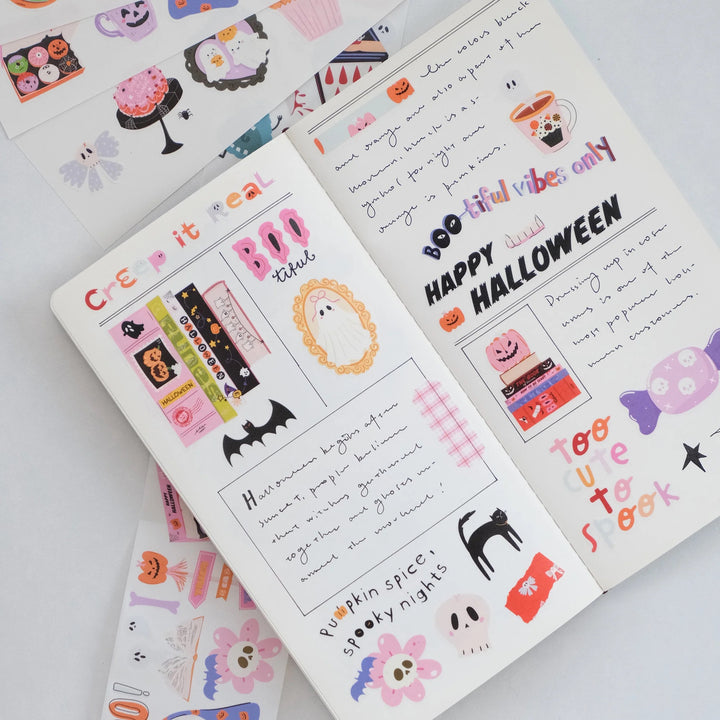 Creep it Real
BOO
tiful
HALLOWEEN
HALLOWEEN
Halloween begins after
sunset, people believe
that witches gathered
together and ghosts
around the world!
Pumpkin spice,
spooky nights
The colors black
and orange are also a part of
black is a
symbol for night and
orange is pumpkins.
BOO-tiful vibes only
HAPPY
HALLOWEEN
Dressing up in cos-
tumes is one of the
most popular hallo-
ween customs.
too
cute
to
spook